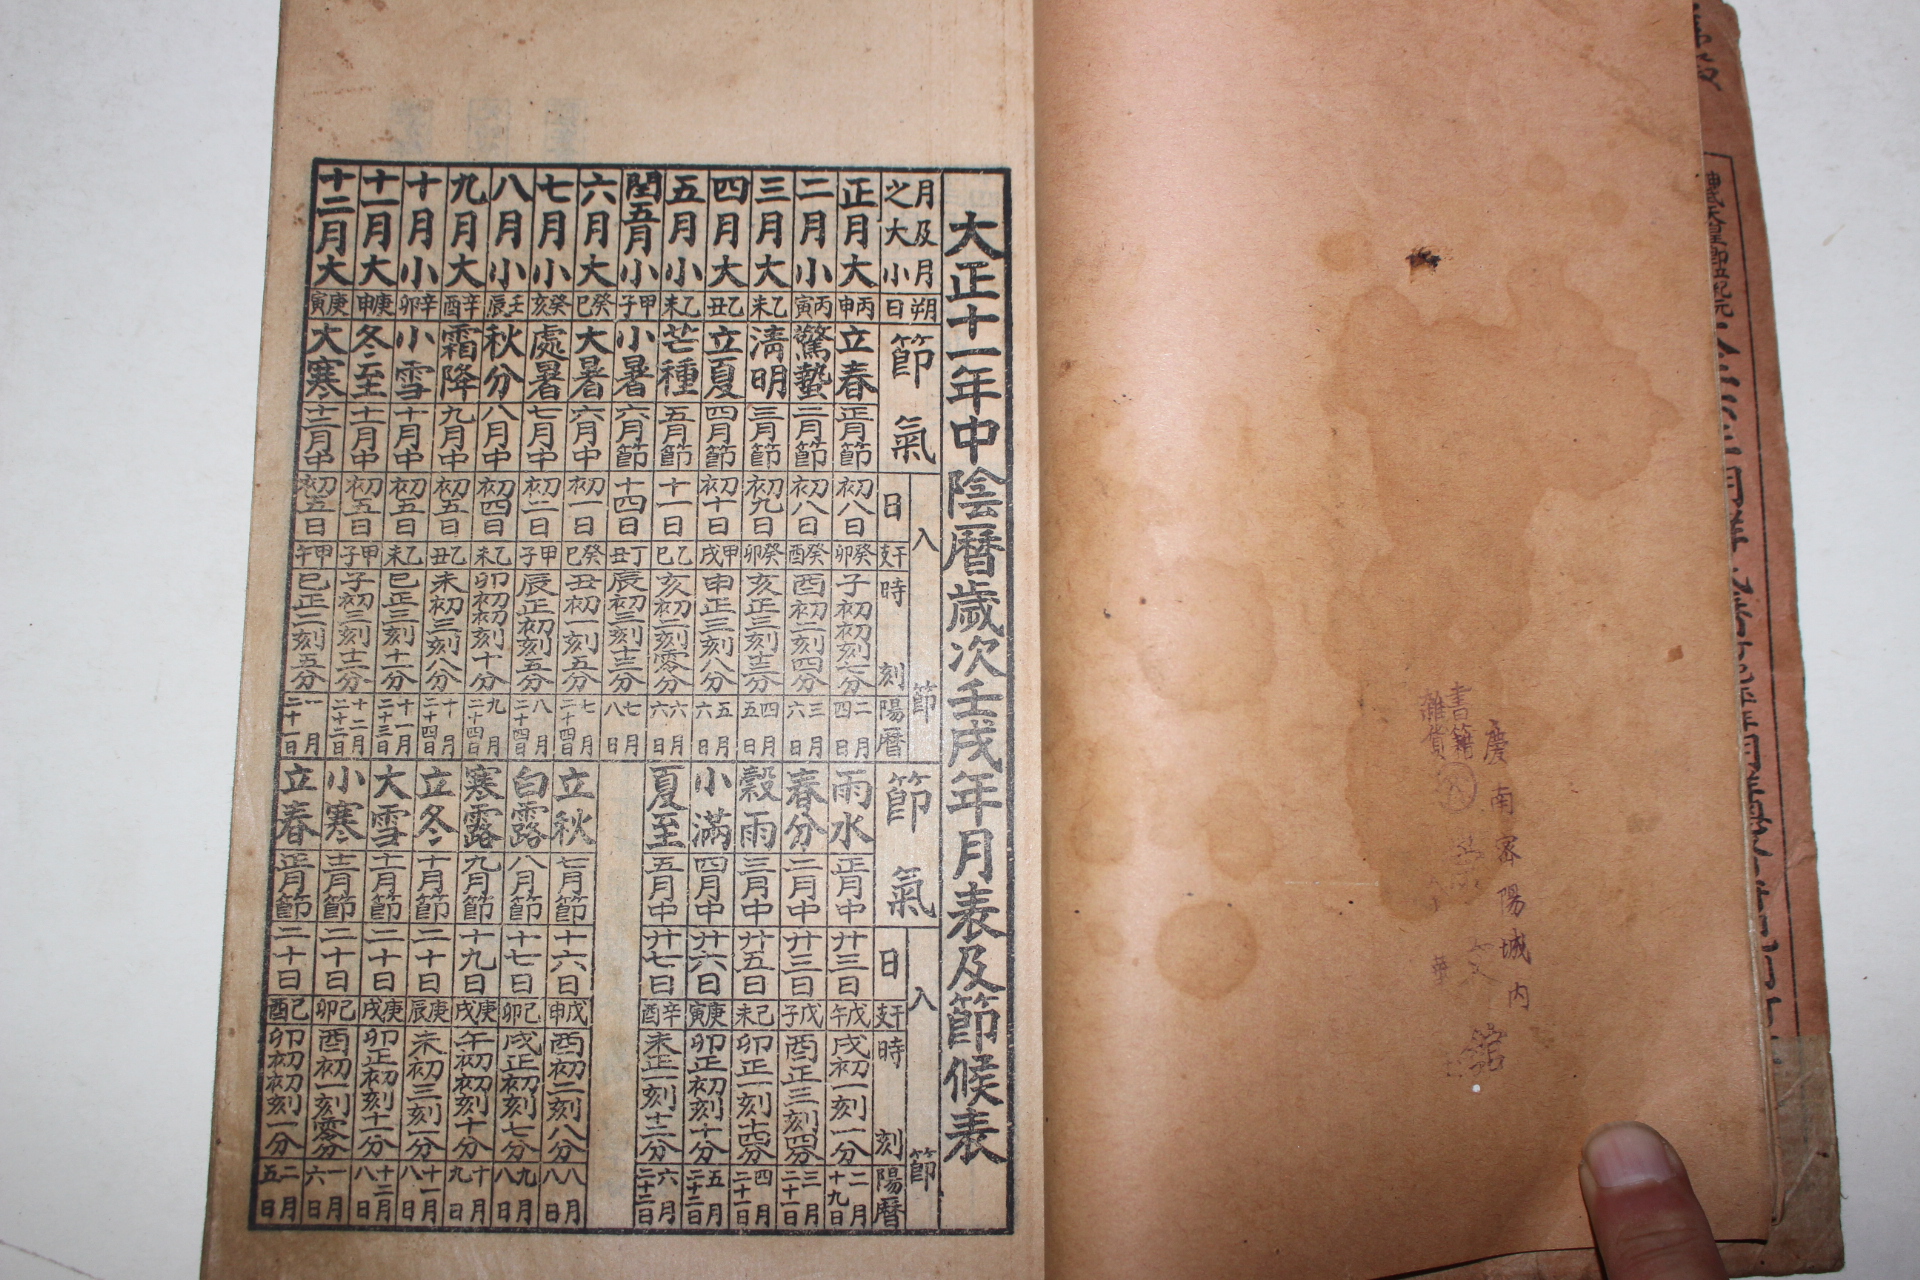 慶南密陽城內
書籍
雜貨
館
華
大正十一年中陰曆歲次壬戌年月表及節候表
月及月朔
之大小日
節氣
入節
日干支時刻陽曆
節氣
入節
日干支時刻陽曆
正月大 丙申 立春 正月節 初八日 癸卯 子初初刻七分 二月四日 雨水 正月中 廿三日 戊午 戌初一刻一分 二月十九日
二月小 丙寅 驚蟄 二月節 初八日 癸酉 酉初二刻四分 三月六日 春分 二月中 廿三日 戊子 酉正三刻四分 三月二十一日
三月大 乙未 淸明 三月節 初九日 癸卯 亥正三刻十三分 四月五日 穀雨 三月中 廿五日 己未 卯正一刻十四分 四月二十一日
四月大 乙丑 立夏 四月節 初十日 甲戌 申正三刻八分 五月六日 小滿 四月中 廿六日 庚寅 卯正初刻十分 五月二十二日
五月小 乙未 芒種 五月節 十一日 乙巳 亥初二刻零分 六月六日 夏至 五月中 廿七日 辛酉 未正一刻十二分 六月二十二日
閏五月小 甲子 小暑 六月節 十四日 丁丑 辰初三刻十三分 七月八日
六月大 癸巳 大暑 六月中 初一日 癸巳 丑初一刻五分 七月二十四日 立秋 七月節 十六日 戊申 酉初二刻八分 八月八日
七月小 癸亥 處暑 七月中 初二日 甲子 辰正初刻五分 八月二十四日 白露 八月節 十七日 己卯 戌正初刻七分 九月八日
八月小 壬辰 秋分 八月中 初四日 乙未 卯初初刻十分 九月二十四日 寒露 九月節 十九日 庚戌 午初初刻十分 十月九日
九月大 辛酉 霜降 九月中 初五日 乙丑 未初三刻八分 十月二十四日 立冬 十月節 二十日 庚辰 未初三刻一分 十一月八日
十月小 辛卯 小雪 十月中 初五日 乙未 巳正三刻十一分 十一月二十三日 大雪 十一月節 二十日 庚戌 卯正初刻十一分 十二月八日
十一月大 庚申 冬至 十一月中 初五日 甲子 子初三刻十三分 十二月二十二日 小寒 十二月節 二十日 己卯 酉初一刻零分 一月六日
十二月大 庚寅 大寒 十二月中 初五日 甲午 巳正二刻五分 一月二十一日 立春 正月節 二十日 己酉 卯初初刻一分 二月五日